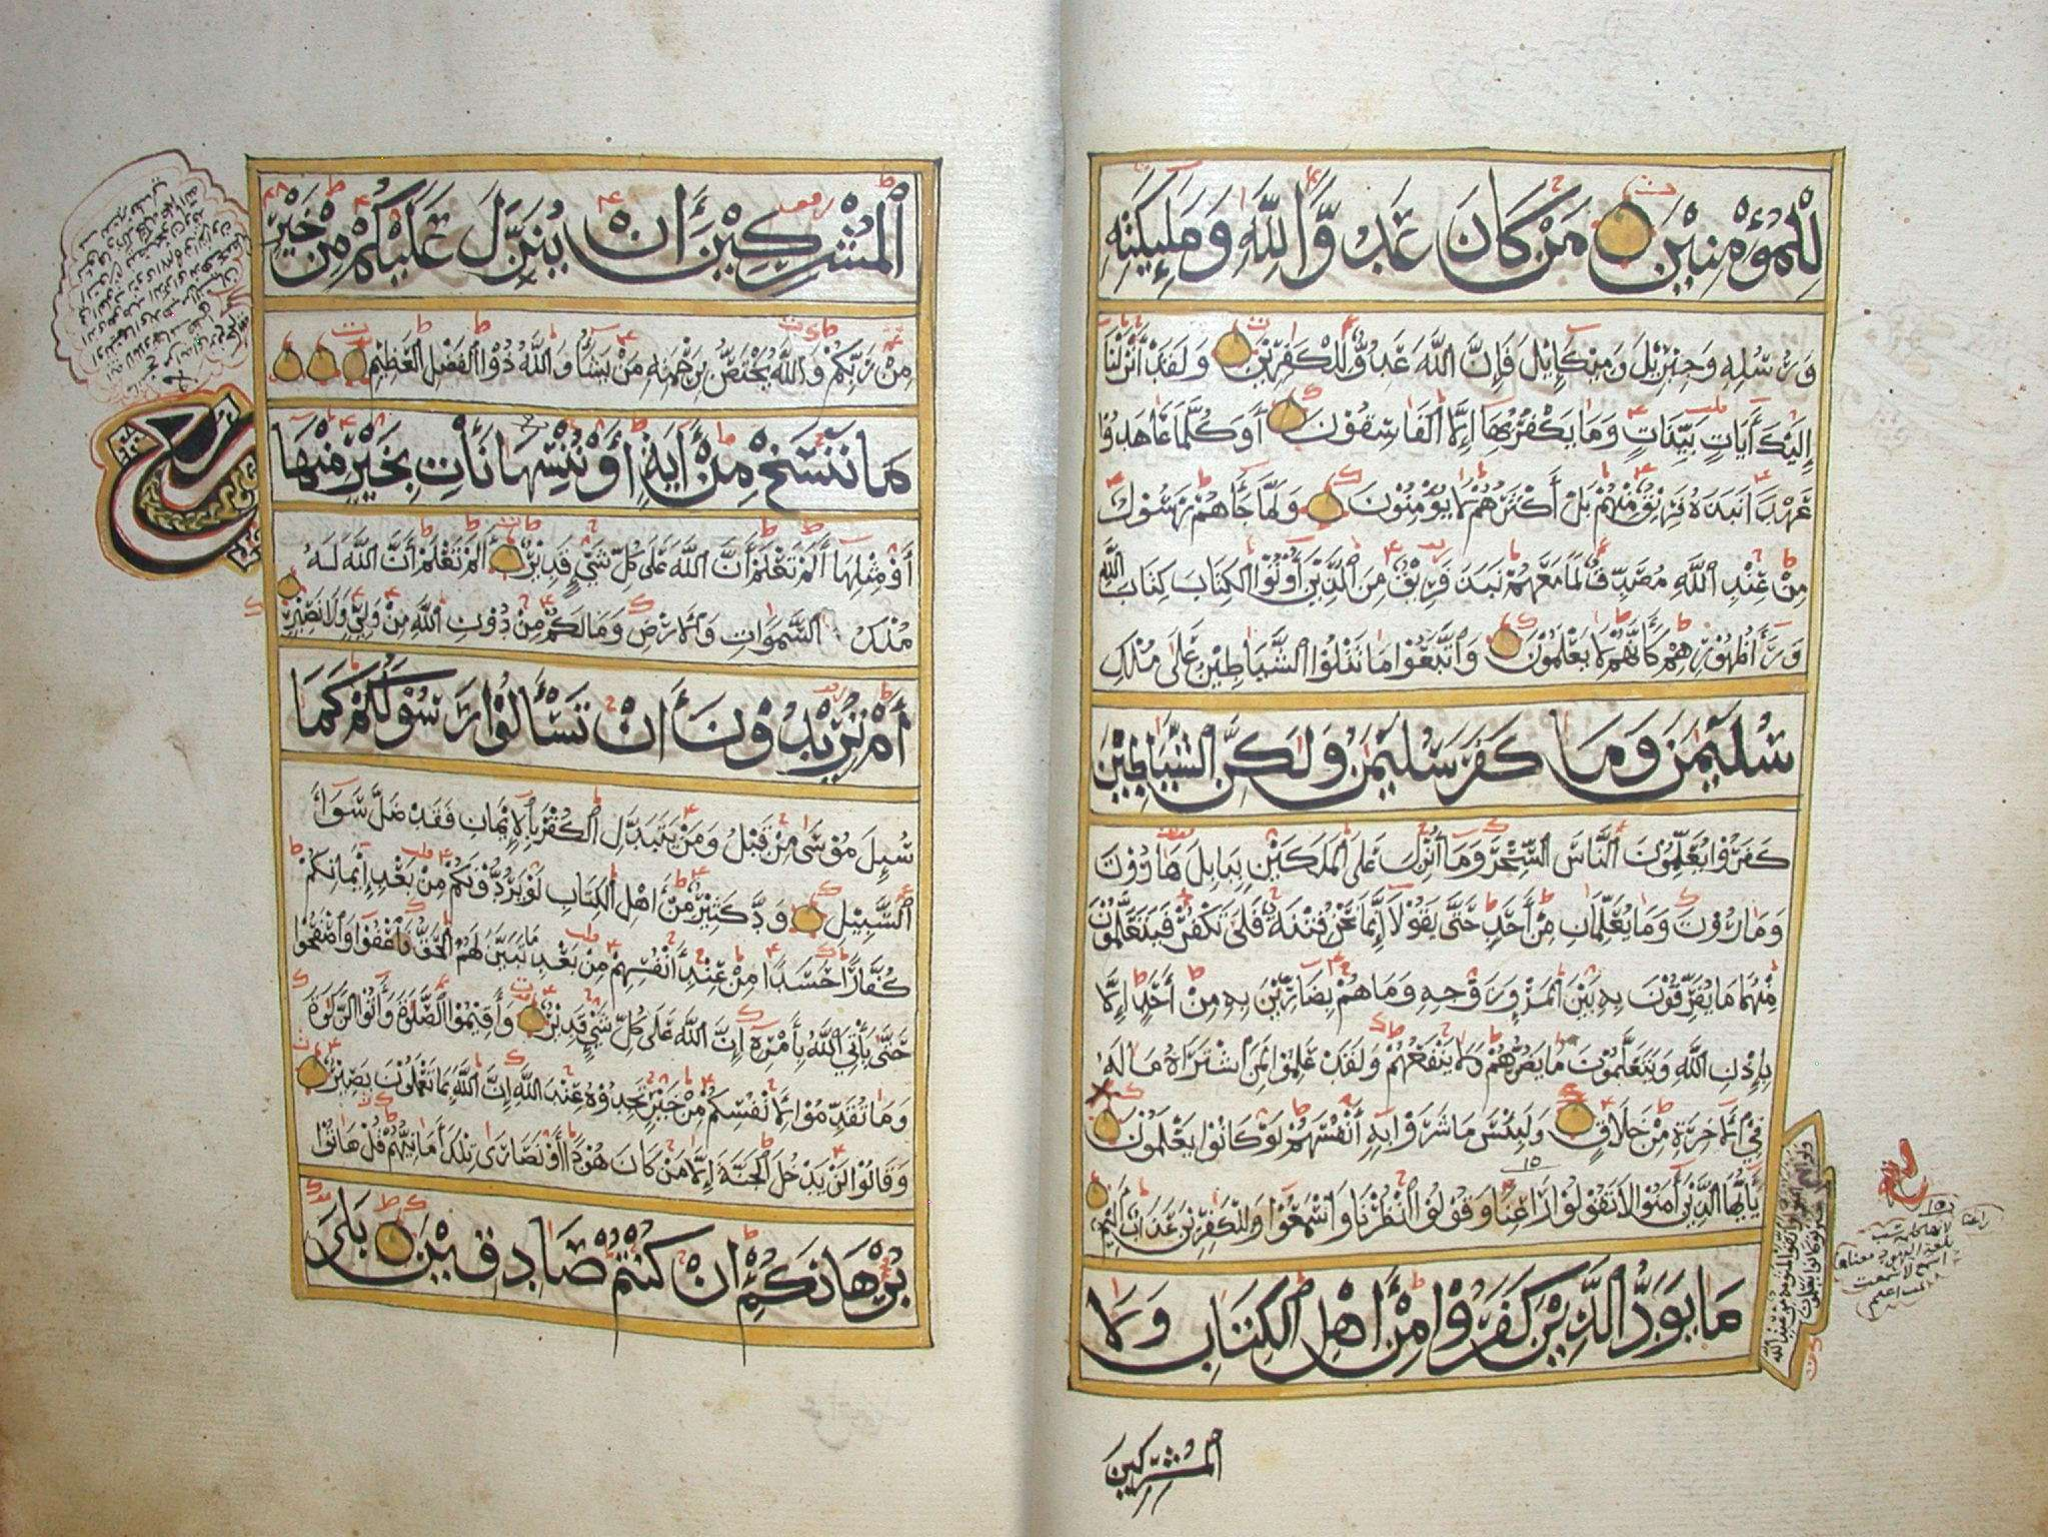 لِلْمُؤْمِنِينَ مَن كَانَ عَدُوًّا لِّلَّهِ وَمَلَٰئِكَتِهِ
وَرُسُلِهِ وَجِبْرِيلَ وَمِيكَايِلَ فَإِنَّ اللَّهَ عَدُوٌّ لِلْكَٰفِرِينَ وَلَقَدْ أَنْزَلْنَا
إِلَيْكَ ءَايَاتٍ بَيِّنَاتٍ وَمَا يَكْفُرُ بِهَا إِلَّا الْفَاسِقُونَ أَوَكُلَّمَا عَاهَدُوا
عَهْدًا نَبَذَهُ فَرِيقٌ مِنْهُمْ بَلْ أَكْثَرُهُمْ لَا يُؤْمِنُونَ وَلَمَّا جَاءَهُمْ رَسُولٌ
مِنْ عِنْدِ اللَّهِ مُصَدِّقٌ لِمَا مَعَهُمْ نَبَذَ فَرِيقٌ مِنَ الَّذِينَ أُوتُوا الْكِتَابَ كِتَابَ اللَّهِ
وَرَاءَ ظُهُورِهِمْ كَأَنَّهُمْ لَا يَعْلَمُونَ وَاتَّبَعُوا مَا تَتْلُوا الشَّيَاطِينُ عَلَى مُلْكِ
سُلَيْمَٰنَ وَمَا كَفَرَ سُلَيْمَٰنُ وَلَٰكِنَّ الشَّيَاطِينَ
كَفَرُوا يُعَلِّمُونَ النَّاسَ السِّحْرَ وَمَا أُنْزِلَ عَلَى الْمَلَكَيْنِ بِبَابِلَ هَارُوتَ
وَمَارُوتَ وَمَا يُعَلِّمَانِ مِنْ أَحَدٍ حَتَّى يَقُولَا إِنَّمَا نَحْنُ فِتْنَةٌ فَلَا تَكْفُرْ فَيَتَعَلَّمُونَ
مِنْهُمَا مَا يُفَرِّقُونَ بِهِ بَيْنَ الْمَرْءِ وَزَوْجِهِ وَمَا هُمْ بِضَارِّينَ بِهِ مِنْ أَحَدٍ إِلَّا
بِإِذْنِ اللَّهِ وَيَتَعَلَّمُونَ مَا يَضُرُّهُمْ وَلَا يَنْفَعُهُمْ وَلَقَدْ عَلِمُوا لَمَنِ اشْتَرَاهُ مَا لَهُ
فِي الْآخِرَةِ مِنْ خَلَاقٍ وَلَبِئْسَ مَا شَرَوْا بِهِ أَنْفُسَهُمْ لَوْ كَانُوا يَعْلَمُونَ
يَأَيُّهَا الَّذِينَ آمَنُوا لَا تَقُولُوا رَاعِنَا وَقُولُوا انْظُرْنَا وَاسْمَعُوا وَلِلْكَٰفِرِينَ عَذَابٌ أَلِيمٌ
مَا يَوَدُّ الَّذِينَ كَفَرُوا مِنْ أَهْلِ الْكِتَابِ وَلَا
الْمُشْرِكِينَ
الْمُشْرِكِينَ أَنْ يُنَزَّلَ عَلَيْكُمْ مِنْ خَيْرٍ
مِنْ رَبِّكُمْ وَاللَّهُ يَخْتَصُّ بِرَحْمَتِهِ مَنْ يَشَاءُ وَاللَّهُ ذُوا الْفَضْلِ الْعَظِيمِ
مَا نَنْسَخْ مِنْ آيَةٍ أَوْ نُنْسِهَا نَأْتِ بِخَيْرٍ مِنْهَا
أَوْ مِثْلِهَا أَلَمْ تَعْلَمْ أَنَّ اللَّهَ عَلَى كُلِّ شَيْءٍ قَدِيرٌ أَلَمْ تَعْلَمْ أَنَّ اللَّهَ لَهُ
مُلْكُ السَّمَوَاتِ وَالْأَرْضِ وَمَا لَكُمْ مِنْ دُونِ اللَّهِ مِنْ وَلِيٍّ وَلَا نَصِيرٍ
أَمْ تُرِيدُونَ أَنْ تَسْأَلُوا رَسُولَكُمْ كَمَا
سُئِلَ مُوسَى مِنْ قَبْلُ وَمَنْ يَتَبَدَّلِ الْكُفْرَ بِالْإِيمَانِ فَقَدْ ضَلَّ سَوَاءَ
السَّبِيلِ وَدَّ كَثِيرٌ مِنْ أَهْلِ الْكِتَابِ لَوْ يَرُدُّونَكُمْ مِنْ بَعْدِ إِيمَانِكُمْ
كُفَّارًا حَسَدًا مِنْ عِنْدِ أَنْفُسِهِمْ مِنْ بَعْدِ مَا تَبَيَّنَ لَهُمُ الْحَقُّ فَاعْفُوا وَاصْفَحُوا
حَتَّى يَأْتِيَ اللَّهُ بِأَمْرِهِ إِنَّ اللَّهَ عَلَى كُلِّ شَيْءٍ قَدِيرٌ وَأَقِيمُوا الصَّلَوةَ وَآتُوا الزَّكَوةَ
وَمَا تُقَدِّمُوا لِأَنْفُسِكُمْ مِنْ خَيْرٍ تَجِدُوهُ عِنْدَ اللَّهِ إِنَّ اللَّهَ بِمَا تَعْمَلُونَ بَصِيرٌ
وَقَالُوا لَنْ يَدْخُلَ الْجَنَّةَ إِلَّا مَنْ كَانَ هُودًا أَوْ نَصَارَى تِلْكَ أَمَانِيُّهُمْ قُلْ هَاتُوا
بُرْهَانَكُمْ إِنْ كُنْتُمْ صَادِقِينَ بَلَى